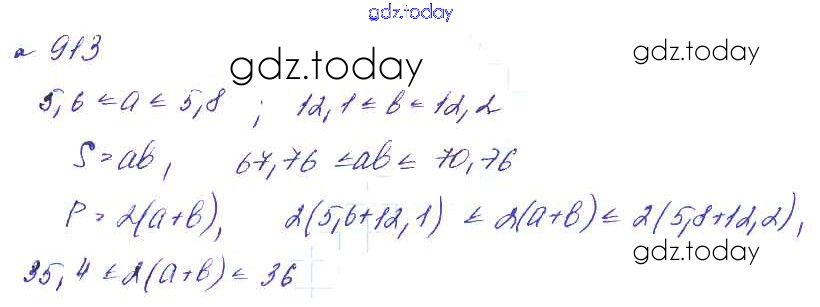 gdz.today
№ 913
gdz.today
gdz.today
5,6 ≤ a ≤ 5,8 ; 12,1 ≤ b ≤ 12,2
S = ab, 67,76 ≤ ab ≤ 70,76
P = 2(a+b), 2(5,6+12,1) ≤ 2(a+b) ≤ 2(5,8+12,2),
gdz.today
35,4 ≤ 2(a+b) ≤ 36